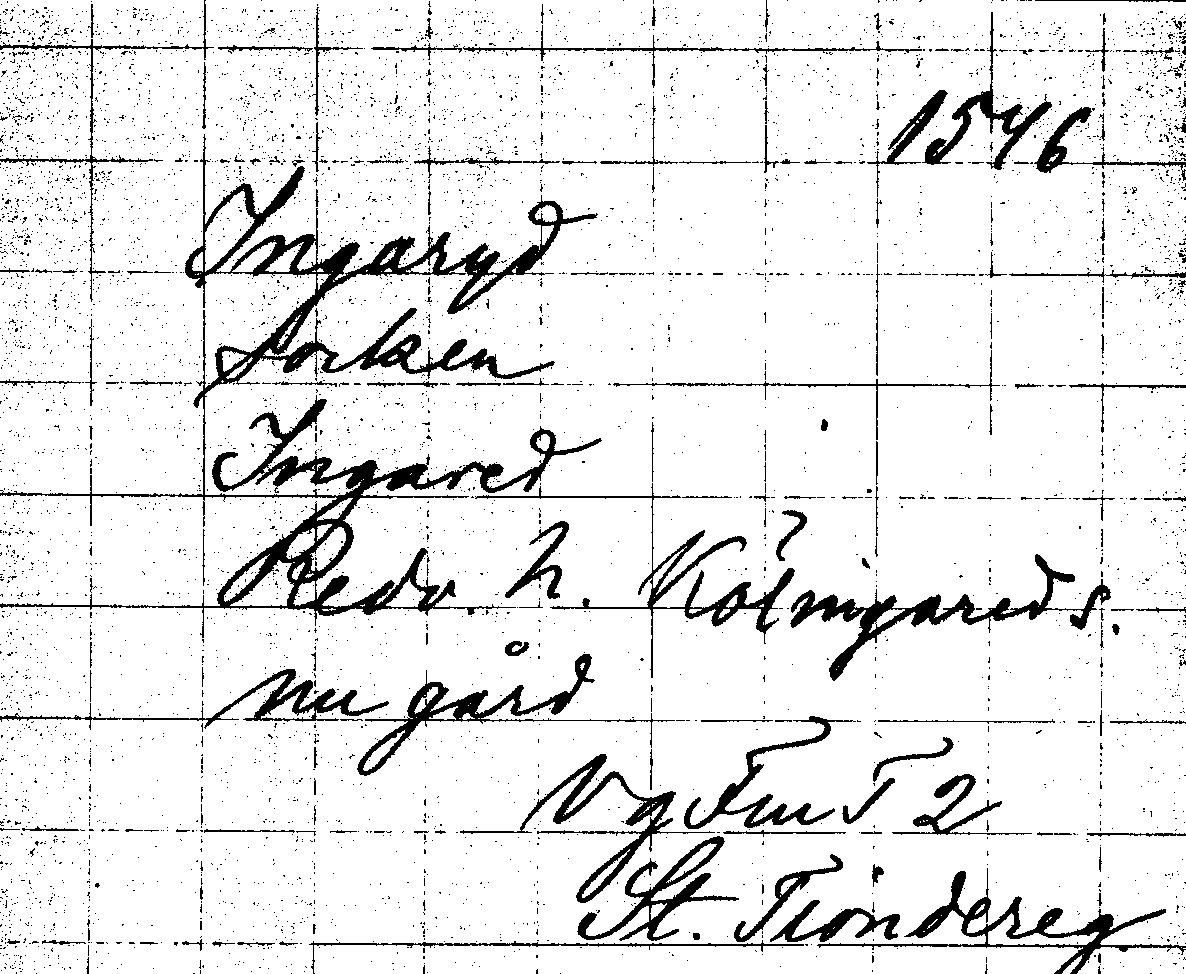 1546
Ingaryd
Socken
Ingared
Redv. h. Kölingareds.
nu gård
Vg Fm T 2
St. Tiondereg.